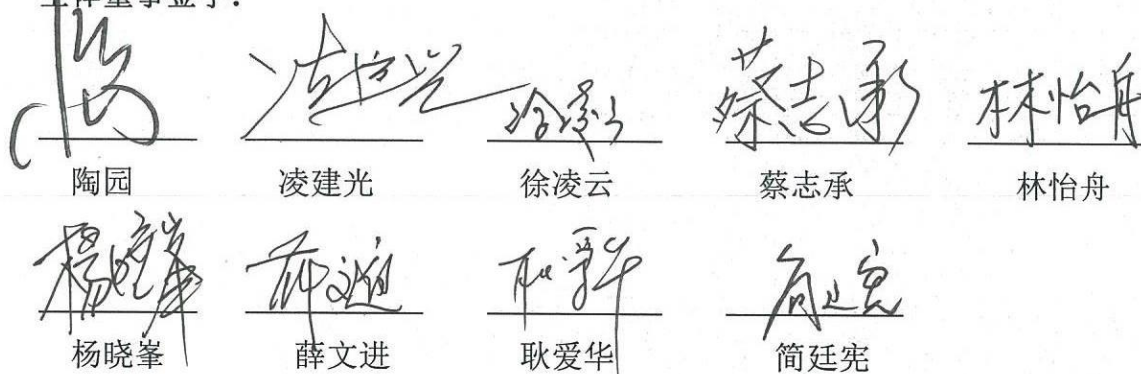 全体董事签字：
陶园 凌建光 徐凌云 蔡志承 林怡舟
杨晓峯 薛文进 耿爱华 简廷宪